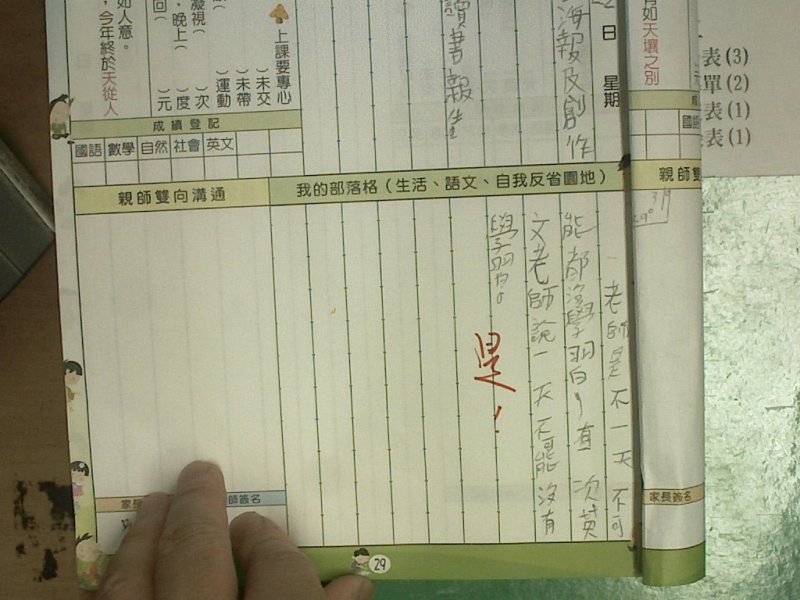 有如天壤之別
表(3)
單(2)
表(1)
表(1)
日 星期
海報及創作
讀書報告
上課要專心
)未交
)未帶
)運動
)次
)度
)元
凝視(
晚上(
回(
如人意。
，今年終於天從人
成績登記
國語 數學 自然 社會 英文
親師雙向溝通
我的部落格(生活、語文、自我反省園地)
老師是不一天不可
能都沒學習，有一次英
文老師說一天不可能沒有
學習。
是！
家長簽名
29